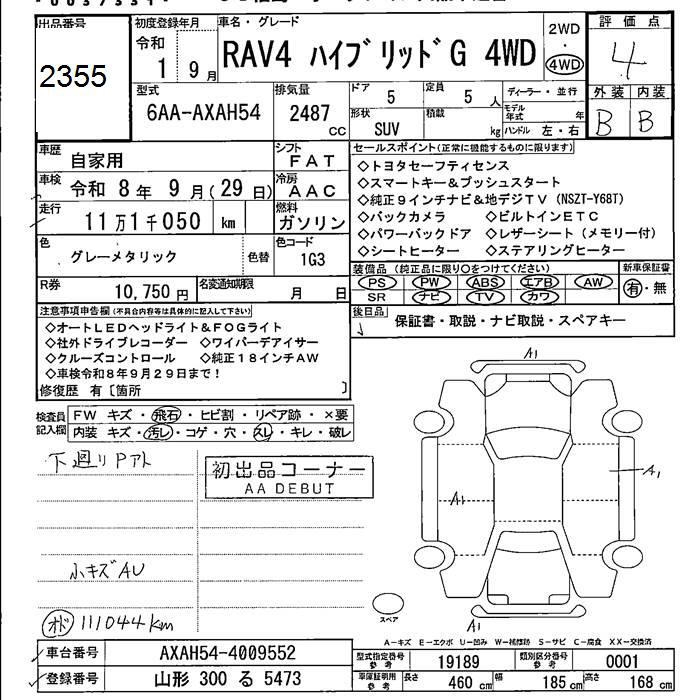 出品番号
2355
初度登録年月
令和
1 9月
車名・グレード
RAV4 ハイブリッドG 4WD
2WD
・
4WD
評価点
4
外装 内装
B B
型式
6AA-AXAH54
排気量
2487
cc
ドア
5
定員
5 人
形状
SUV
積載
kg
ディーラー・並行
モデル年式 年
ハンドル 左・右
車歴
自家用
シフト
FAT
車検
令和 8年 9月(29日)
冷房
AAC
走行
11万1千050 km
燃料
ガソリン
色
グレーメタリック
色替
色コード
1G3
R券
10,750円
名変通知期限
月 日
セールスポイント(正常に機能するものに限ります)
◇トヨタセーフティセンス
◇スマートキー&プッシュスタート
◇純正9インチナビ&地デジTV(NSZT-Y68T)
◇バックカメラ ◇ビルトインETC
◇パワーバックドア ◇レザーシート(メモリー付)
◇シートヒーター ◇ステアリングヒーター
装備品(純正品に限り○をつけてください)
新車保証書
PS PW ABS エアB AW
SR ナビ TV カワ
有・無
後日品
保証書・取説・ナビ取説・スペアキー
注意事項申告欄(不具合内容等は具体的に記入して下さい)
◇オートLEDヘッドライト&FOGライト
◇社外ドライブレコーダー ◇ワイパーデアイサー
◇クルーズコントロール ◇純正18インチAW
◇車検令和8年9月29日まで!
修復歴 有〔箇所 〕
検査員記入欄
FW キズ・飛石・ヒビ割・リペア跡・×要
内装 キズ・汚レ・コゲ・穴・スレ・キレ・破レ
下廻りPアト
初出品コーナー
AA DEBUT
小キズAU
オド 111044km
A1
A1
A1
A1
スペア
A-キズ E-エクボ U-凹み W-補修跡 S-サビ C-腐食 XX-交換済
車台番号
AXAH54-4009552
登録番号
山形 300 る 5473
型式指定番号
参考
19189
類別区分番号
参考
0001
車庫証明用
参考
長さ
460 cm
幅
185 cm
高さ
168 cm